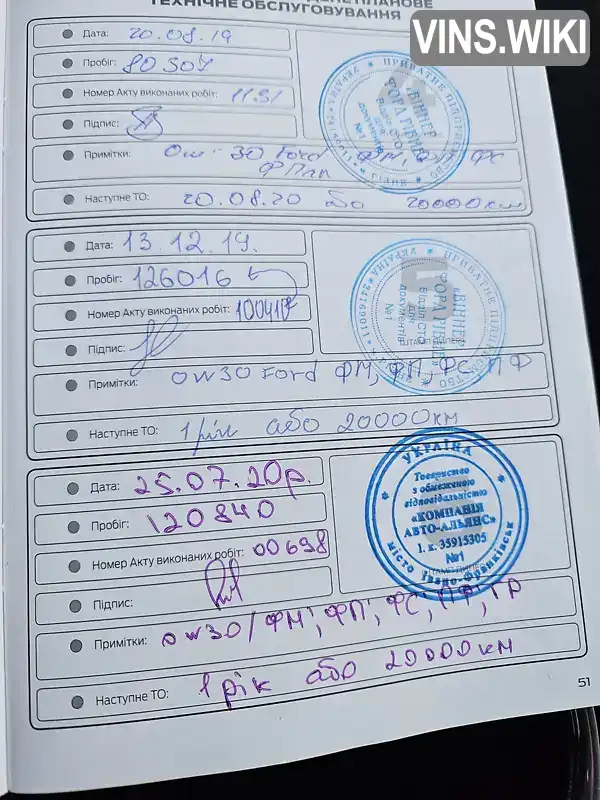 VINS.WIKI
ТЕХНІЧНЕ ОБСЛУГОВУВАННЯ
Дата: 20.08.19
Пробіг: 80304
Номер Акту виконаних робіт: 1131
Підпис:
Примітки: 30 Ford ФМ, ФП, ФС
Наступне ТО: 20.08.20 20000км
ПРИВАТНЕ ПІДПРИЄМСТВО
УКРАЇНА
«ВІННЕР
ФОРД РІВНЕ»
Дата: 13.12.19.
Пробіг: 126016
Номер Акту виконаних робіт:
Підпис:
Примітки: 0w30 Ford ФМ, ФП, ФС, ПФ
Наступне ТО: 1 рік або 20000км
УКРАЇНА ПРИВАТНЕ ПІДПРИЄМСТВО
«ВІННЕР
ФОРД РІВНЕ»
Відділ СТО
для
документів
№1
Дата: 25.07.20р.
Пробіг: 120840
Номер Акту виконаних робіт: 00698
Підпис:
Примітки: 0w30/ФМ, ФП, ФС, ПФ, ГР
Наступне ТО: 1 рік або 20000км
УКРАЇНА
Товариство
з обмеженою
відповідальністю
«КОМПАНІЯ
АВТО-АЛЬЯНС»
і. к. 35915305
№1
місто Івано-Франківськ
51